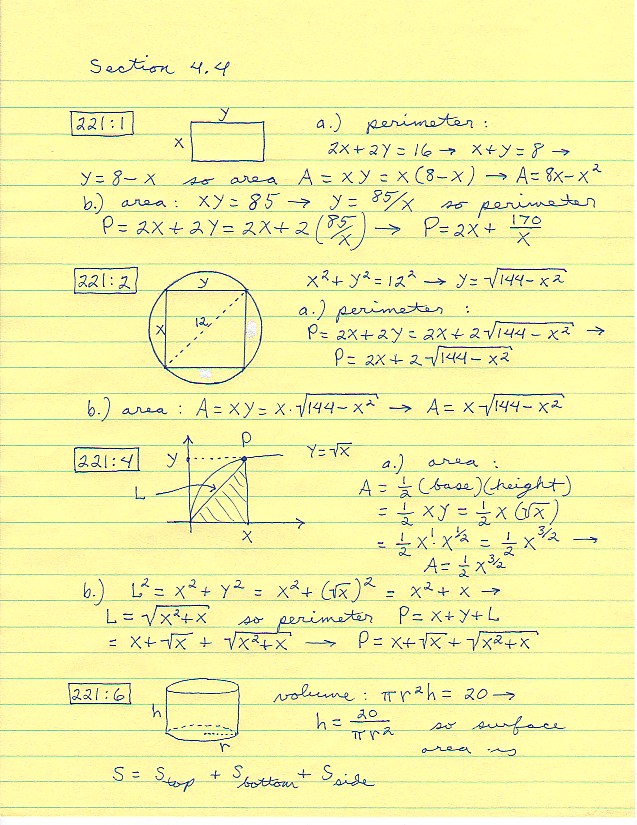 Section 4.4
221:1
y
x
a.) perimeter :
2x + 2y = 16 → x + y = 8 →
y = 8 - x so area A = xy = x(8-x) → A = 8x - x²
b.) area : xy = 85 → y = 85/x so perimeter
P = 2x + 2y = 2x + 2(85/x) → P = 2x + 170/x
221:2
y
x
12
x² + y² = 12² → y = √(144 - x²)
a.) perimeter :
P = 2x + 2y = 2x + 2√(144 - x²) →
P = 2x + 2√(144 - x²)
b.) area : A = xy = x·√(144 - x²) → A = x√(144 - x²)
221:4
y
P
L
x
y = √x
a.) area :
A = 1/2 (base)(height)
= 1/2 xy = 1/2 x (√x)
= 1/2 x¹ x^(1/2) = 1/2 x^(3/2) →
A = 1/2 x^(3/2)
b.) L² = x² + y² = x² + (√x)² = x² + x →
L = √(x² + x) so perimeter P = x + y + L
= x + √x + √(x² + x) → P = x + √x + √(x² + x)
221:6
h
r
volume : πr²h = 20 →
h = 20/πr² so surface
area is
S = S top + S bottom + S side